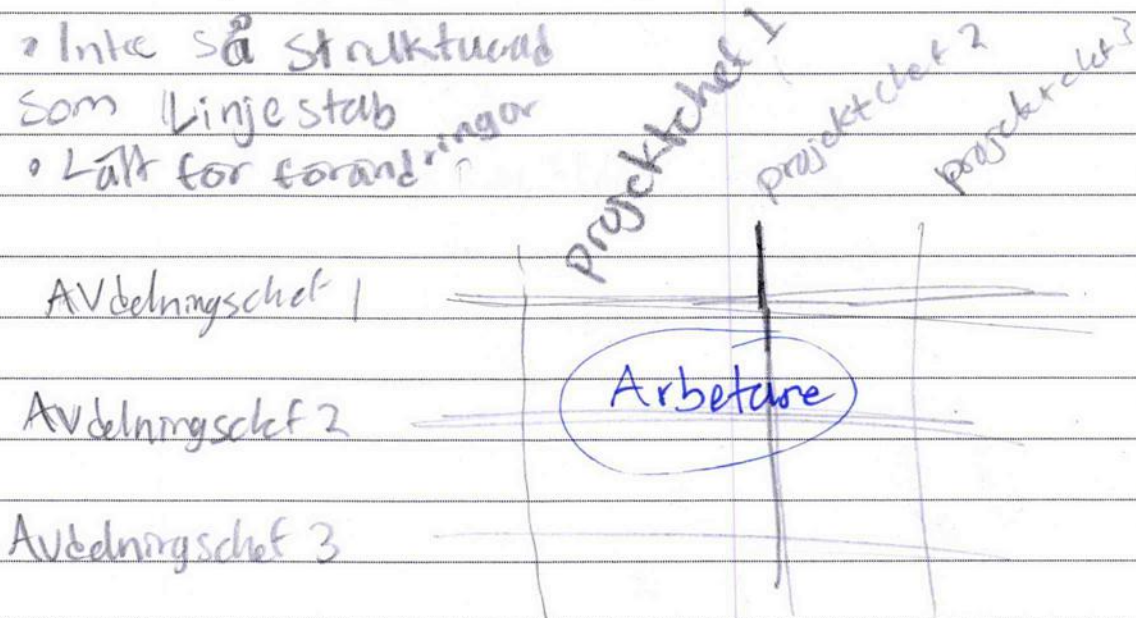 • Inte så strukturad
som Linjestab
• Lätt för förändringar
projektchef 1
projektchef 2
projektchef 3
Avdelningschef 1
Avdelningschef 2
Avdelningschef 3
Arbetare